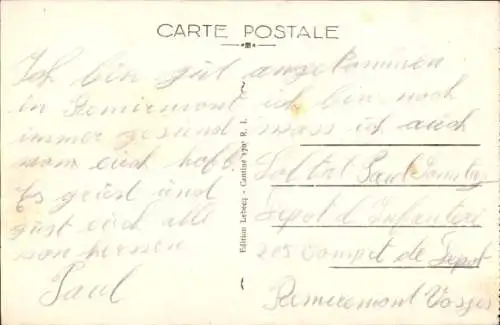 CARTE POSTALE
Ich bin gut angekommen
in Remiremont ich bin noch
immer gesund was ich auch
vom euch hofe
Es grüst und
küst euch alle
von herzen
Paul
Edition Lebecq - Cantine 170e R. I.
Soldat Paul
Depot d'Infanteri
205 Compet de Depot
Remiremont Vosges